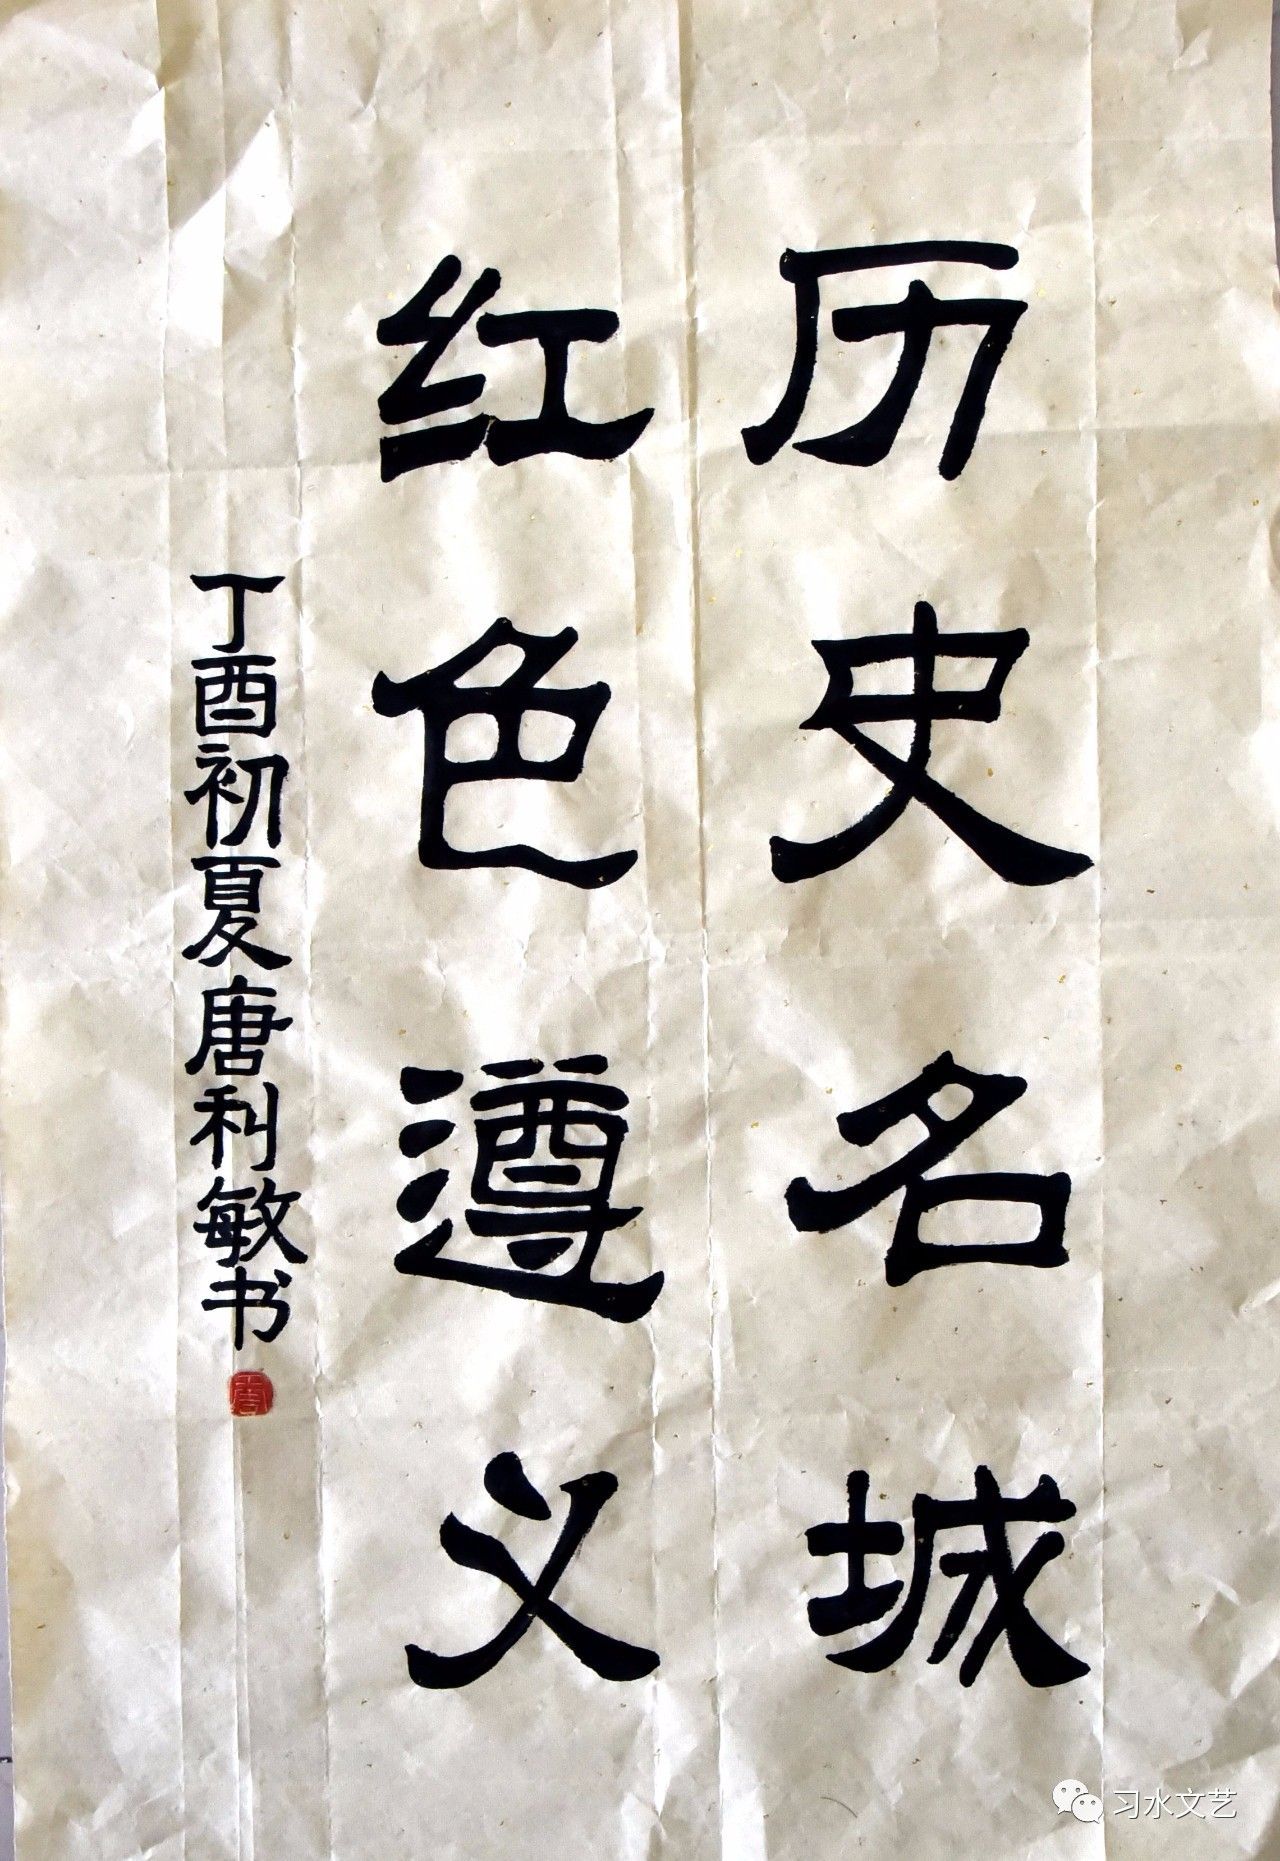 历史名城
红色遵义
丁酉初夏唐利敏书
习水文艺